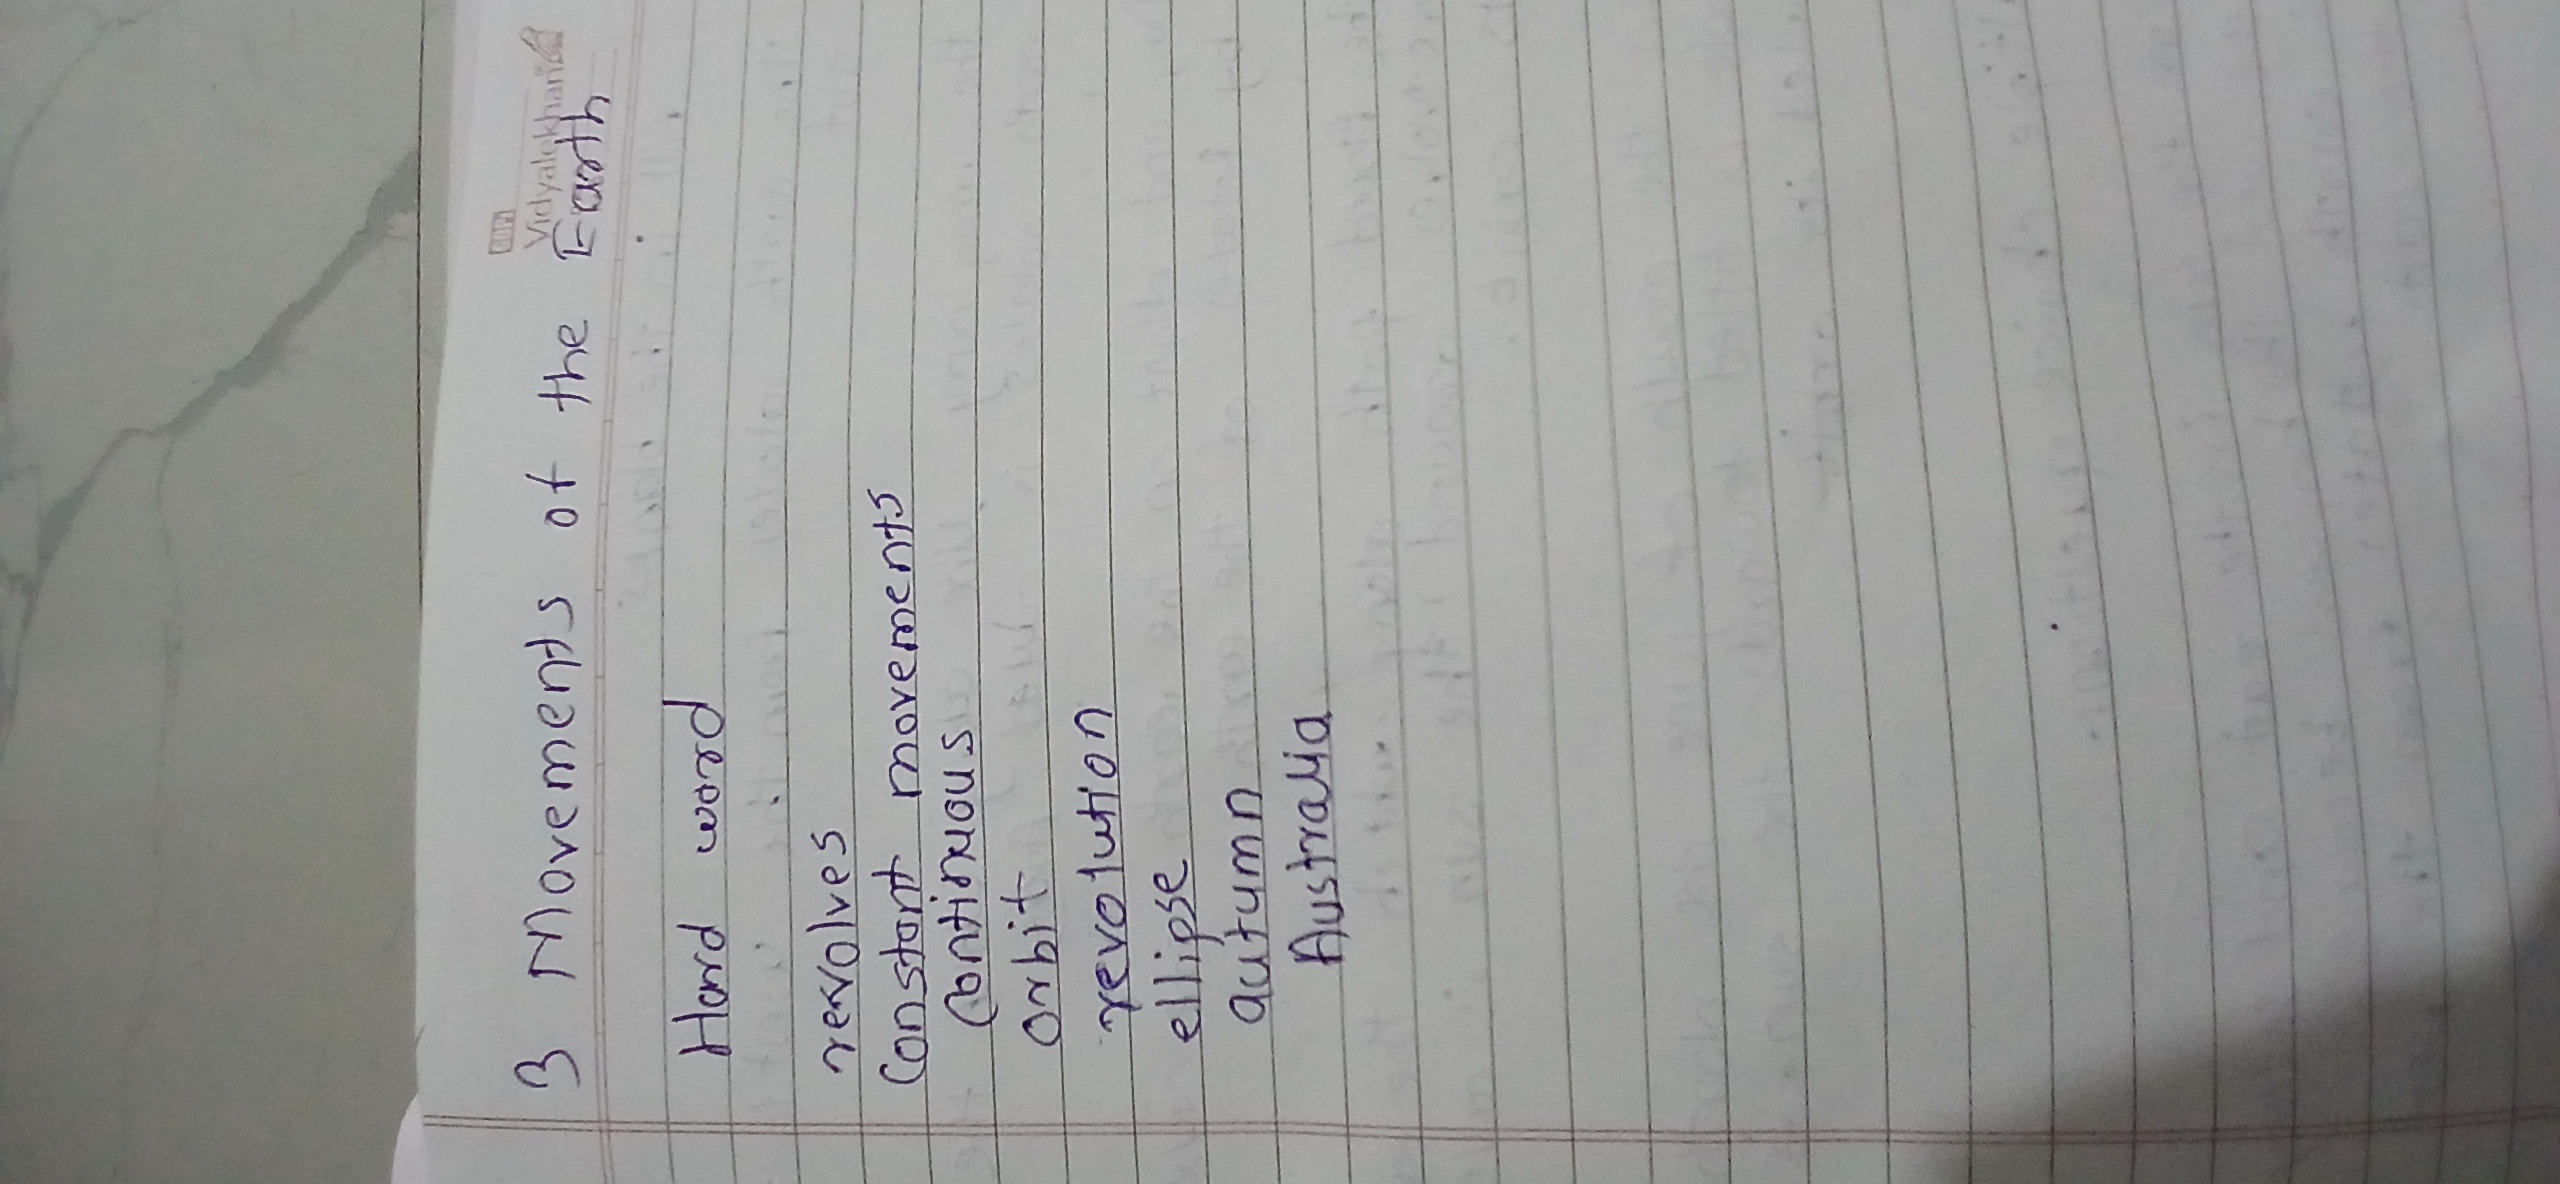 Vidyalekhan
3 Movements of the Earth
Hard word
revolves
Constant movements
Continuous
Orbit
revolution
ellipse
autumn
Australia